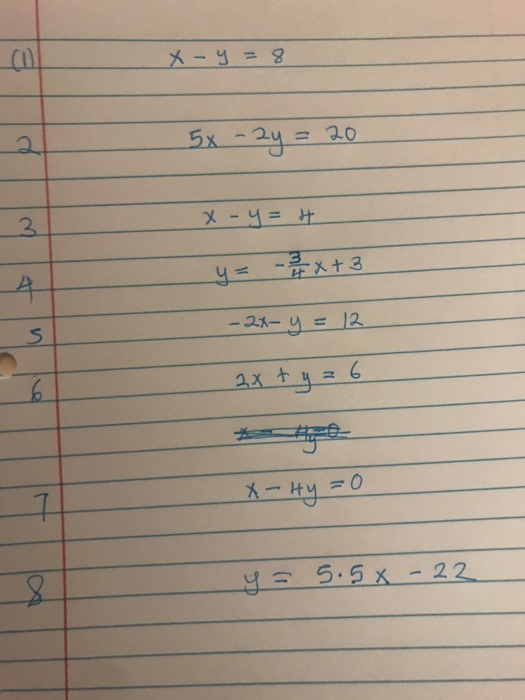 (1) x - y = 8
2 5x - 2y = 20
3 x - y = 4
4 y = -3/4 x + 3
5 -2x - y = 12
6 2x + y = 6
x - 4y = 0
7 x - 4y = 0
8 y = 5.5x - 22